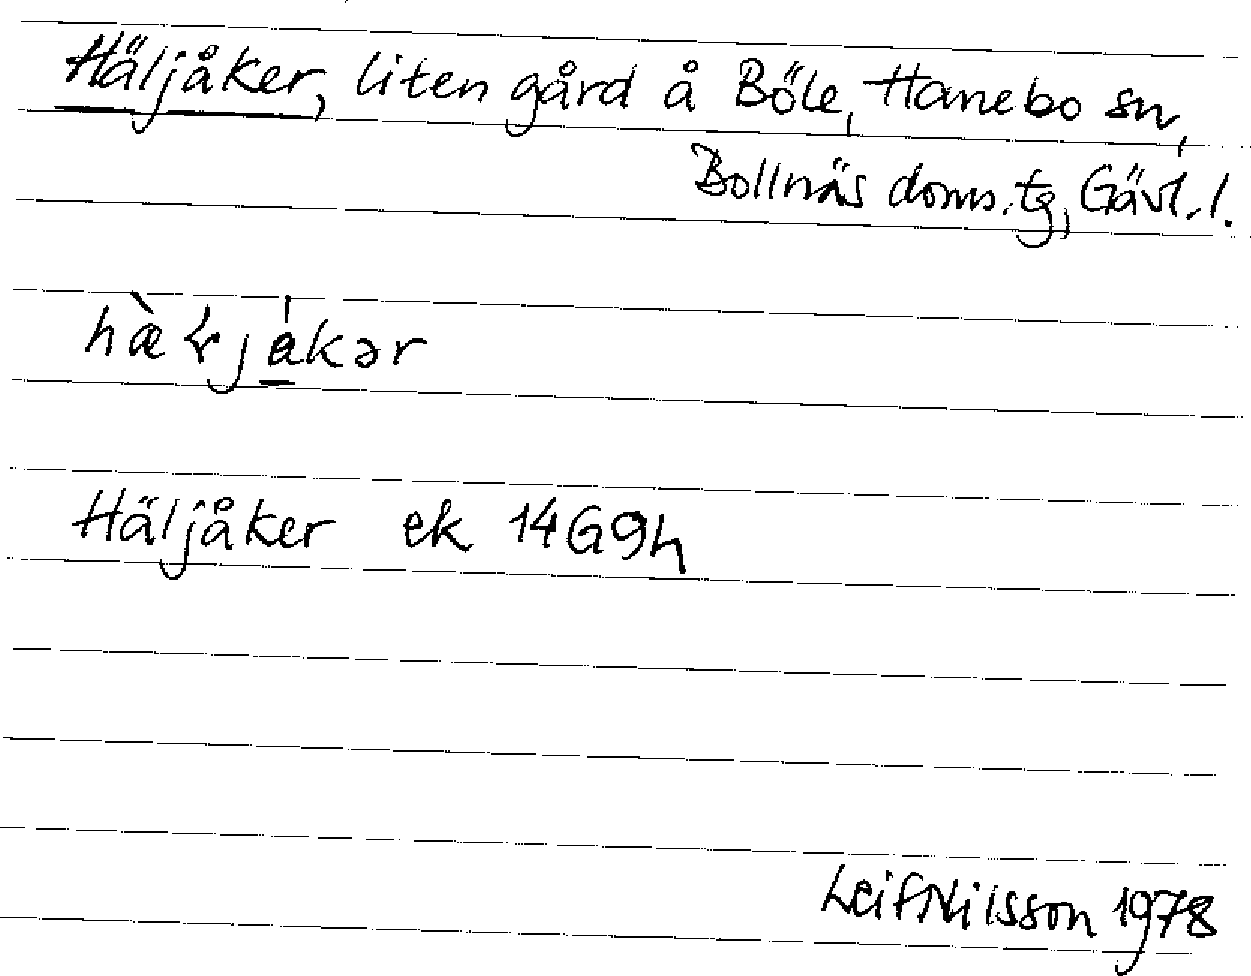 Häljåker, liten gård å Böle, Hanebo sn,
Bollnäs doms.tg, Gävl.l.
hæ̀ɽjákər
Häljåker ek 14G9h
Leif Nilsson 1978